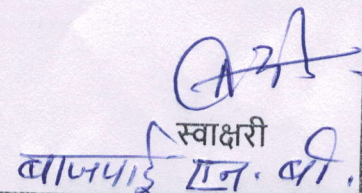 स्वाक्षरी
बाजपाई एन. बी.